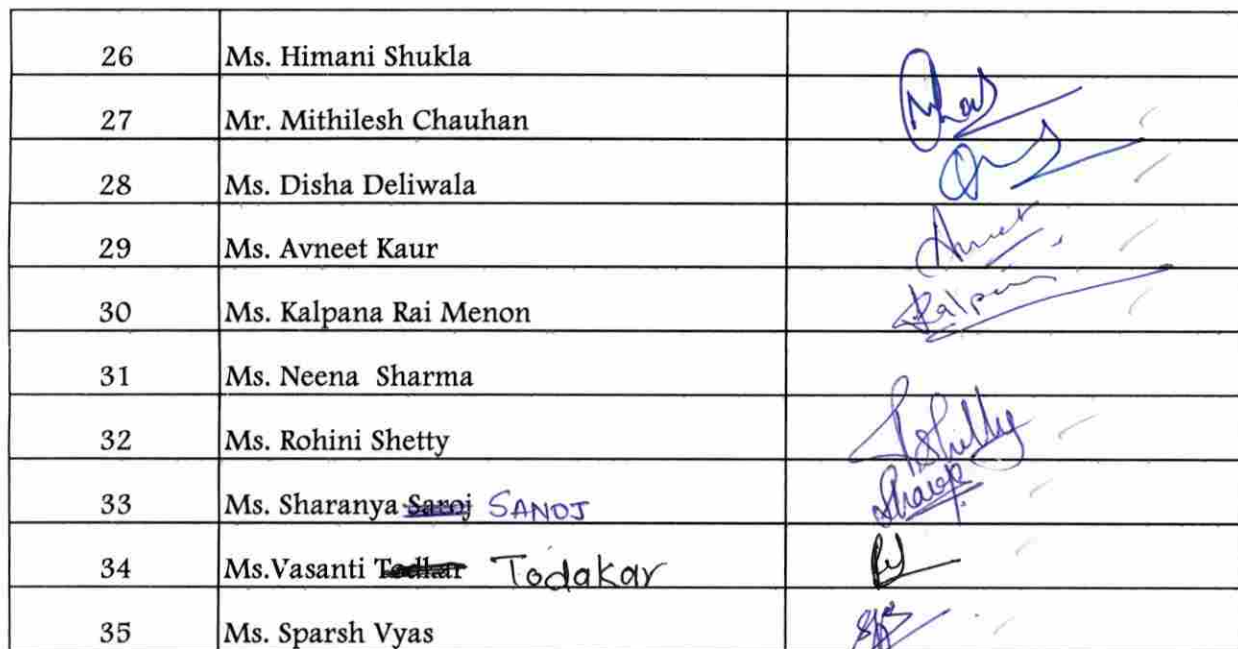 26 Ms. Himani Shukla
27 Mr. Mithilesh Chauhan
28 Ms. Disha Deliwala
29 Ms. Avneet Kaur Avneet
30 Ms. Kalpana Rai Menon Kalpana
31 Ms. Neena Sharma
32 Ms. Rohini Shetty RShetty
33 Ms. Sharanya Saroj SANOJ
34 Ms.Vasanti Todkar Todakar
35 Ms. Sparsh Vyas